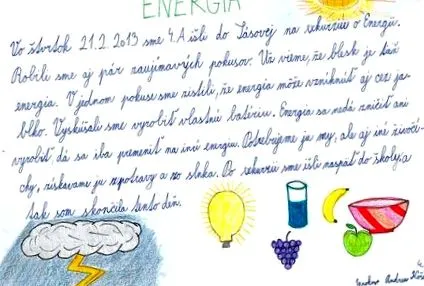 ENERGIA
Vo štvrtok 21.2.2013 sme 4.A išli do Jásovej na exkurziu o Energii.
Robili sme aj pár zaujímavých pokusov. Už vieme, že blesk je tiež
energia. V jednom pokuse sme zistili, že energia môže vzniknúť aj cez ja-
blko. Vyskúšali sme vyrobiť vlastnú batériu. Energia sa nedá zničiť ani
vyrobiť dá sa iba premeniť na inú energiu. Potrebujeme ju my, ale aj iné živočí-
chy, získavame ju z potravy a zo slnka. Po exkurzii sme išli naspäť do školy a
tak som skončila tento deň.
4.
Andrea